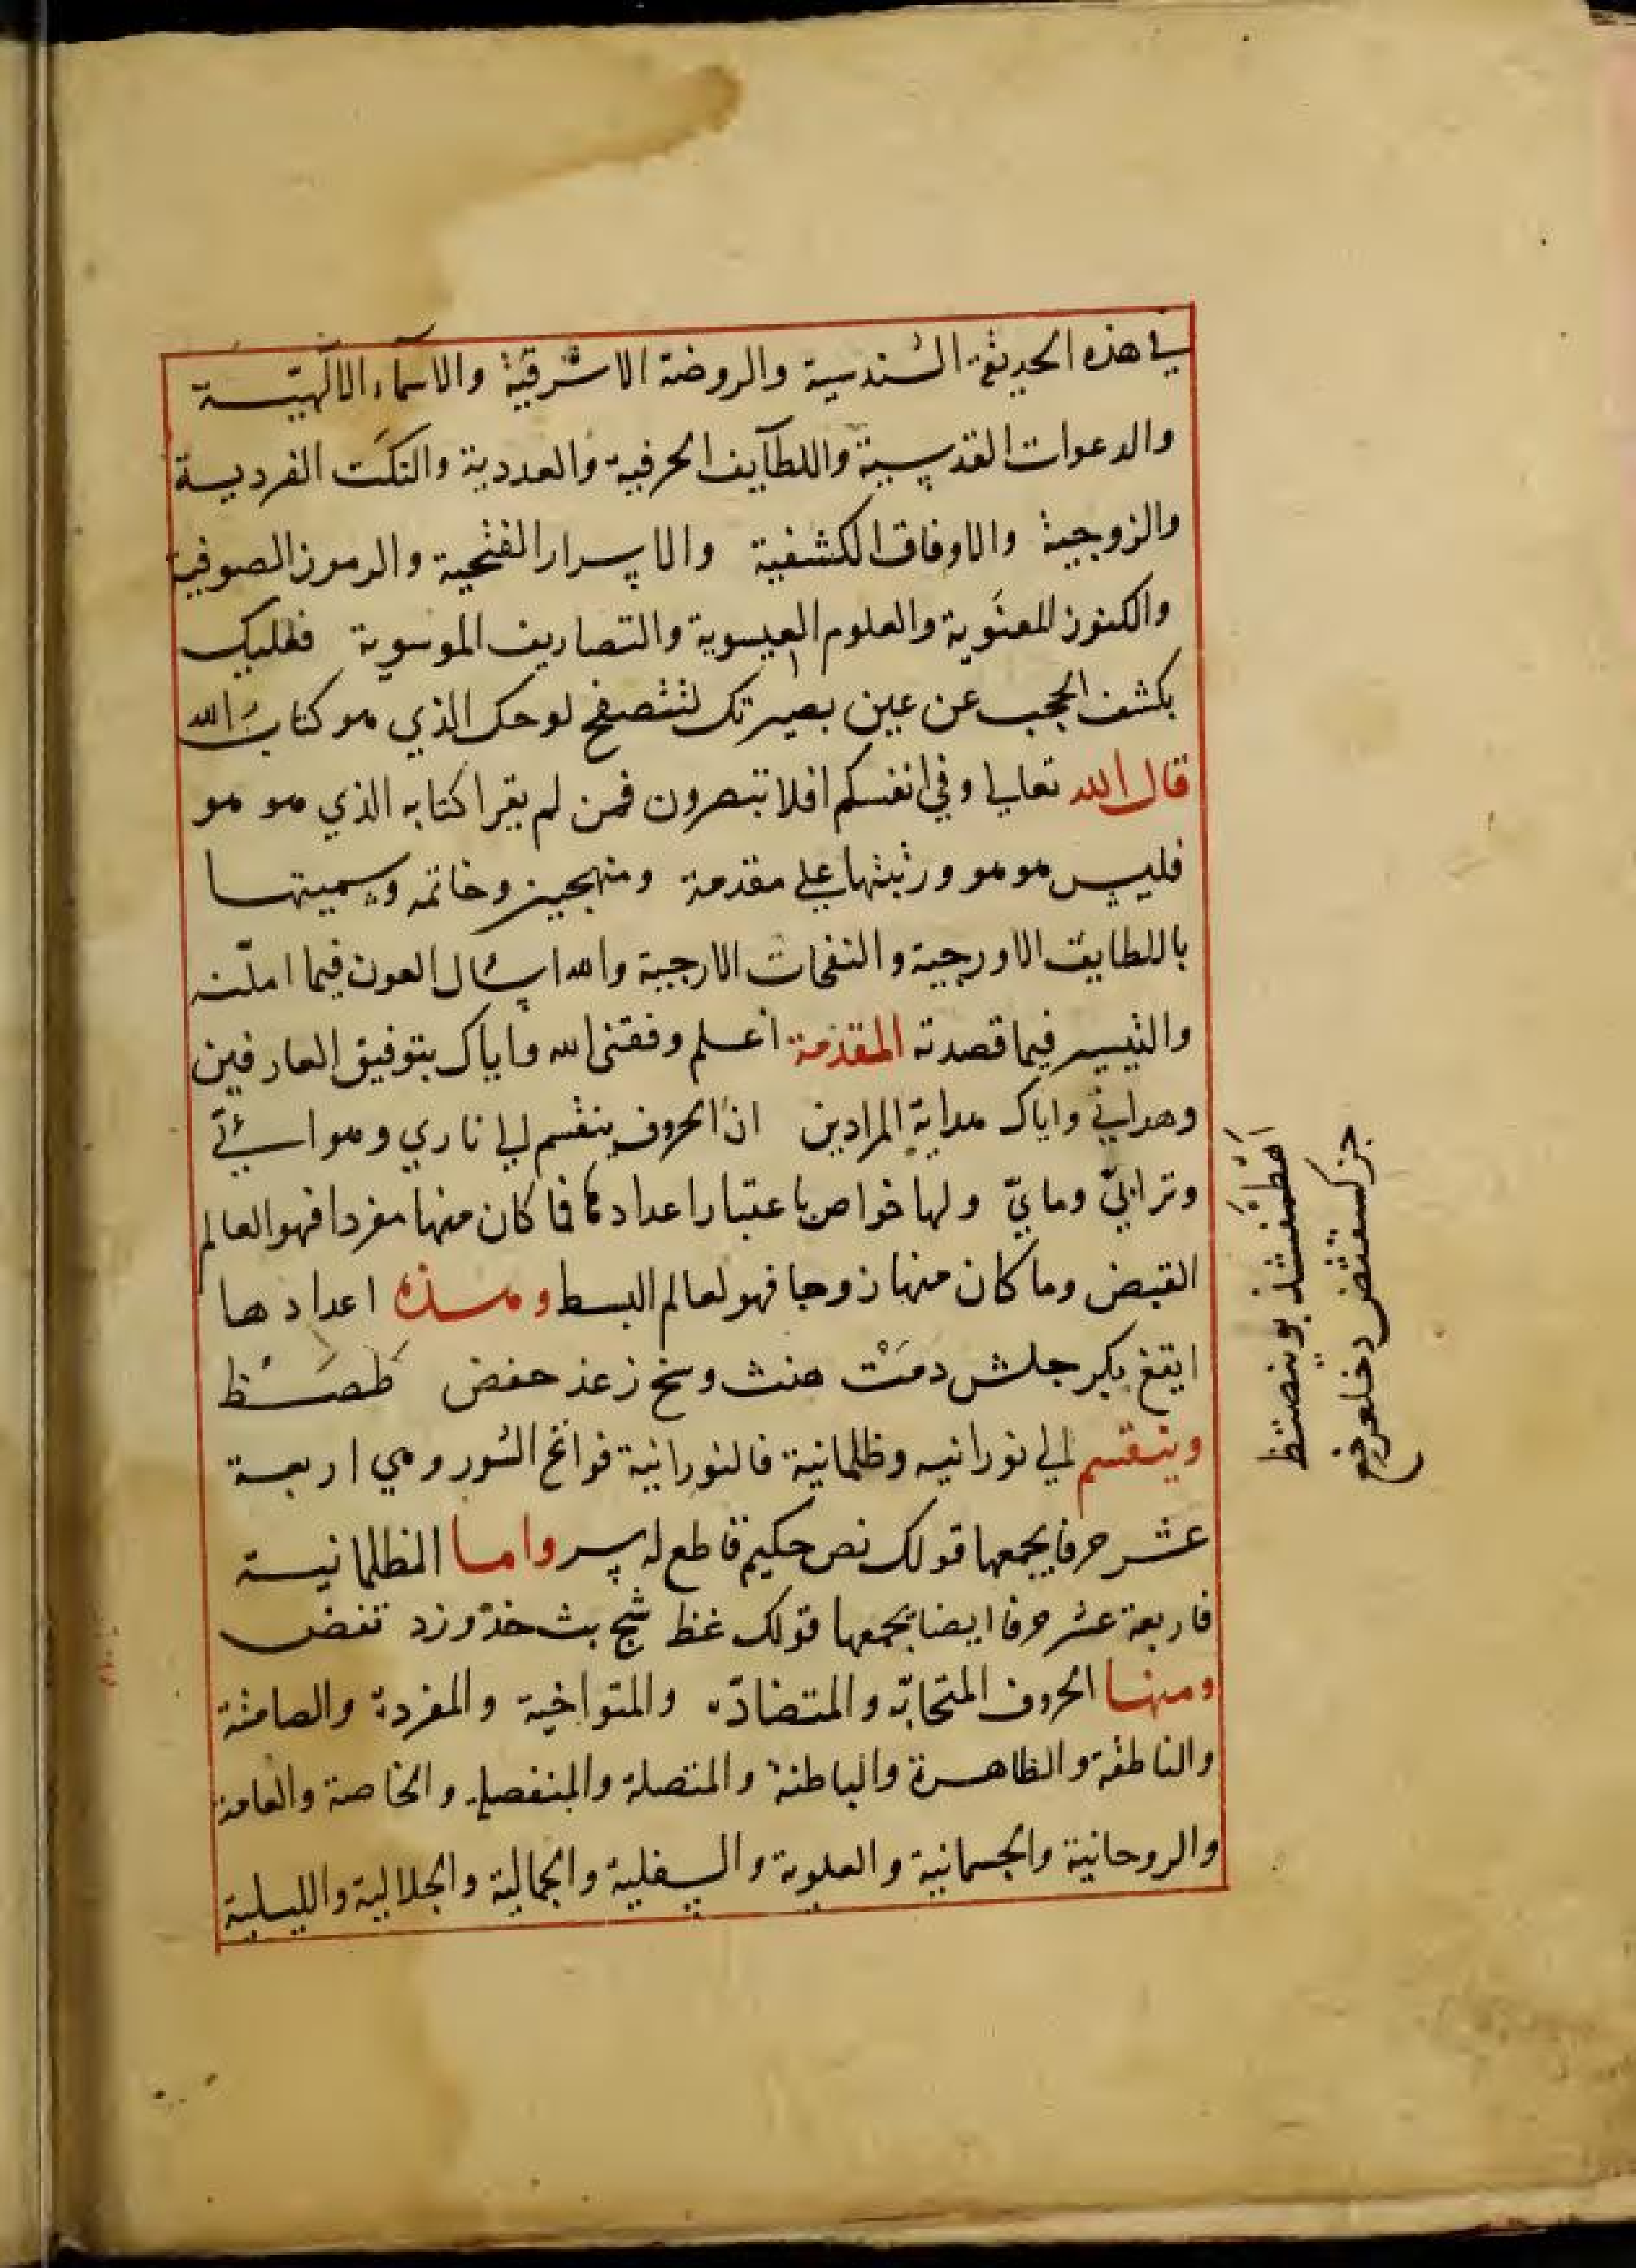 في هذه الحديقة السندسية والروضة الاشرقية والاسمآء الالهيّة
والدعوات القدسية واللطآيف الحرفية والعددية والنكت الفردية
والزوجية والاوفاق الكشفية والاسرار الفتحية والرموز الصوفية
والكنوز المعنوية والعلوم العيسوية والتصاريف الموسوية فعليك
بكشف الحجب عن عين بصيرتك لتتصفح لوحك الذي هو كتاب الله
قال الله تعالى وفي انفسكم افلا تبصرون فمن لم يقرا كتابه الذي هو هو
فليس هو هو ورتبتها على مقدمة ومنهجين وخاتمه وسميتها
باللطايف الاورجية والنفحات الارجية والله اسال العون فيما املته
والتيسير فيما قصدته المقدمة اعلم وفقني الله واياك بتوفيق العارفين
وهداني واياك هداية المرادين ان الحروف ينقسم الى ناري وهوائي
وترابي ومايي ولها خواص باعتبار اعدادها فما كان منها مفردا فهو العالم
القبض وما كان منها زوجا فهو لعالم البسط وهذه اعدادها
ايقغ بكر جلش دمَت هنث وسخ زعذ حفض طصظ
وينقسم الى نورانيه وظلمانية فالنورانية فواتح السور وهي اربعة
عشر حرفا يجمعها قولك نص حكيم قاطع له سر واما الظلمانية
فاربعة عشر حرفا ايضا يجمعها قولك غظ شج بث خذ وزد تفض
ومنها الحروف المتحابّه والمتضادّه والمتواخية والمفردة والصامتة
والناطقة والظاهرة والباطنة والمتصلة والمنفصلة والخاصة والعامة
والروحانية والجسمانية والعلوية والسفلية والجمالية والجلالية والليلية
اهطمفشذ بوينصتظ
جزكسقثض دخلعرخغ